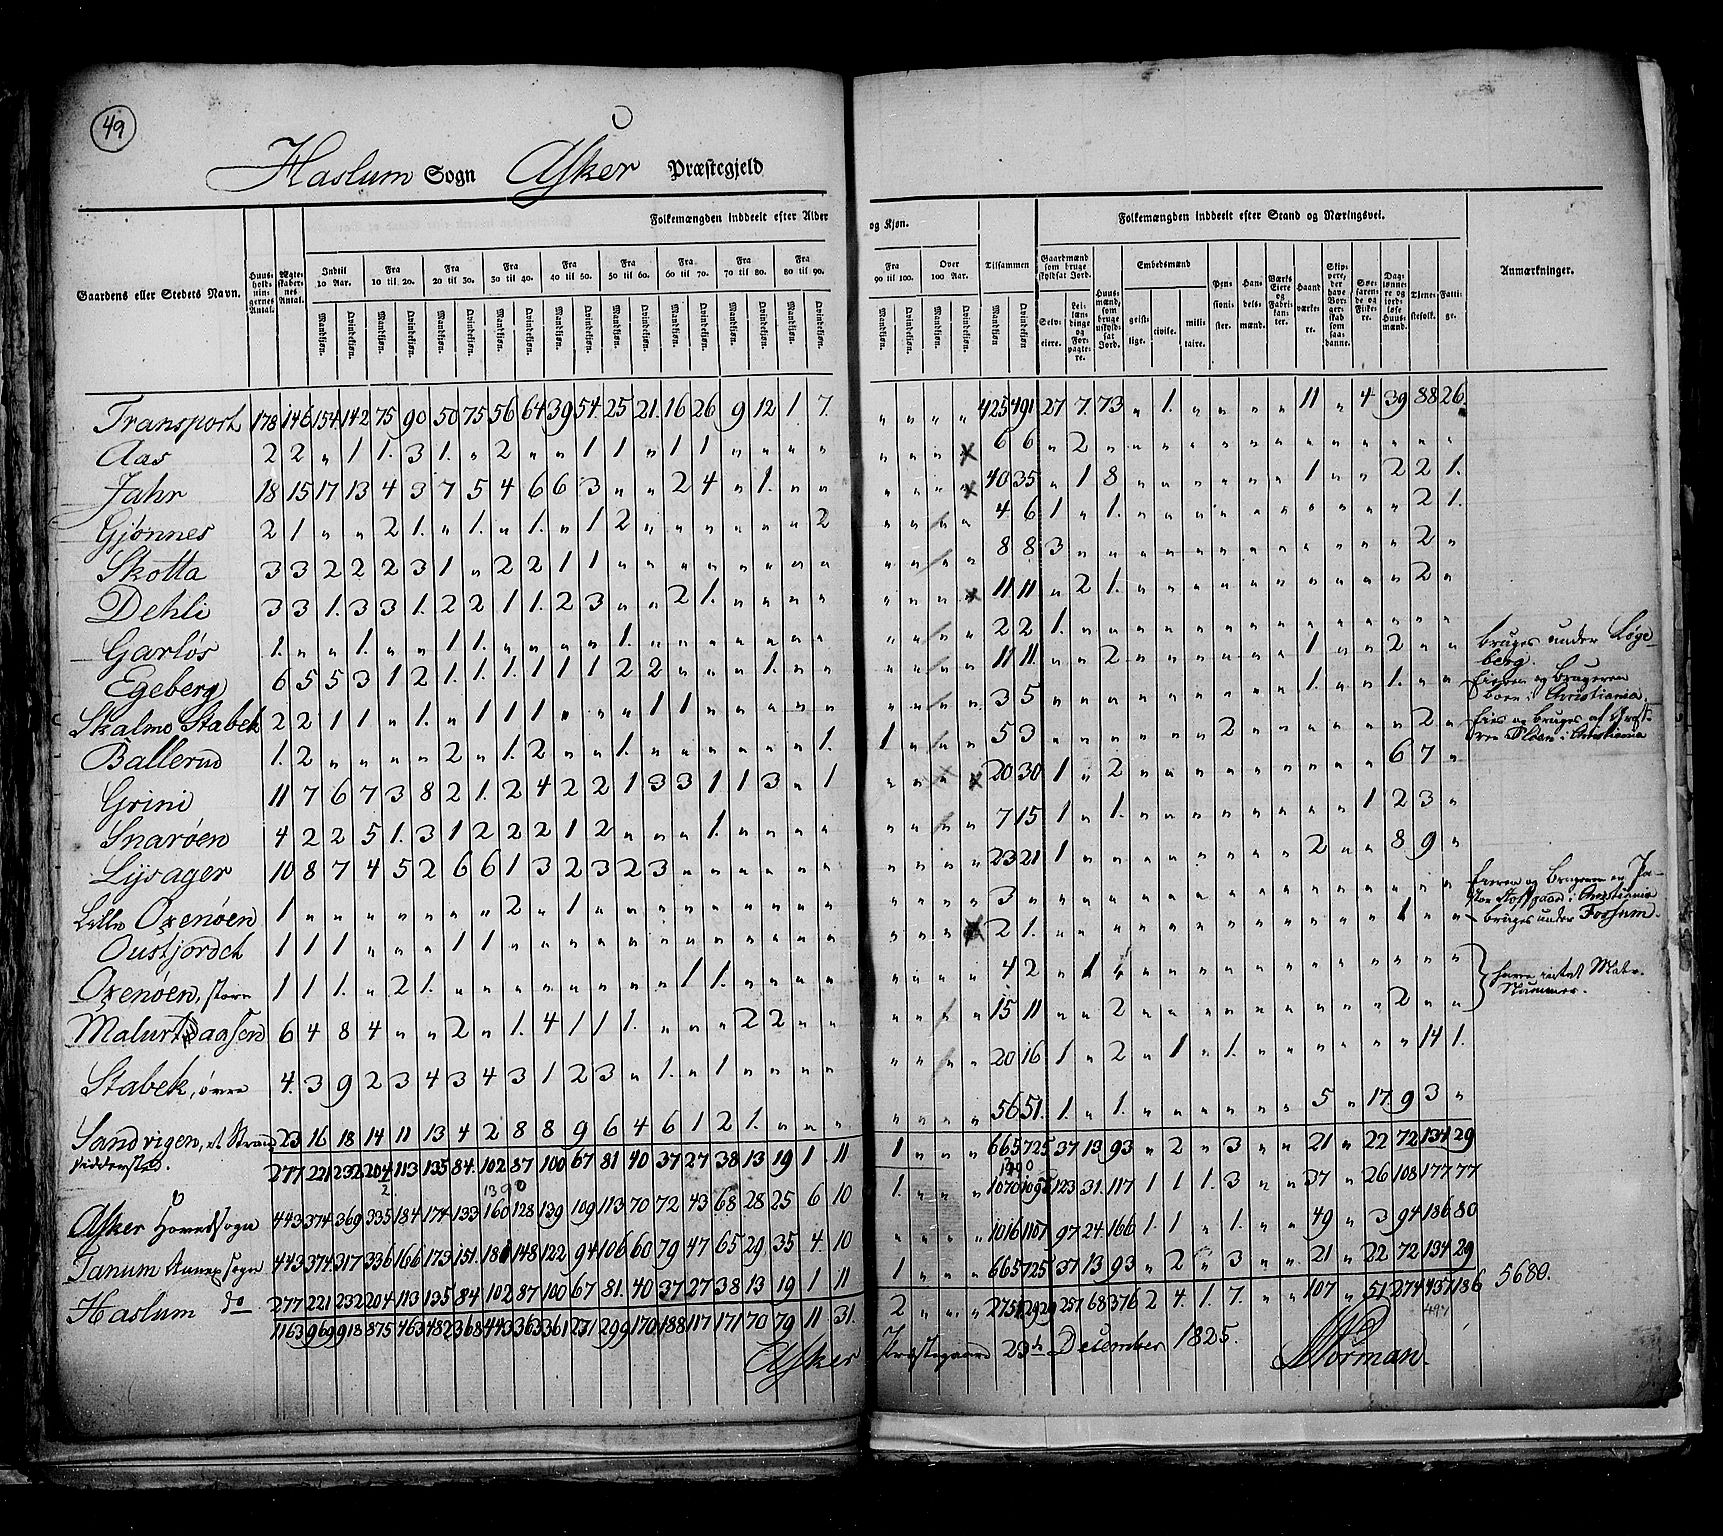 49
Haslum Sogn Asker Præstegjeld
Gaardens eller Stedets Navn.
Huusholdningernes Antal.
Ægteskabernes Antal.
Folkemængden inddeelt efter Alder og Kjøn.
Indtil 10 Aar.
Fra 10 til 20.
Fra 20 til 30.
Fra 30 til 40.
Fra 40 til 50.
Fra 50 til 60.
Fra 60 til 70.
Fra 70 til 80.
Fra 80 til 90.
Fra 90 til 100.
Over 100 Aar.
Tilsammen
Mandkjøn. Qvindekjøn.
Folkemængden inddeelt efter Stand og Næringsvei.
Gaardmænd som bruge skyldsat Jord.
Selveiere.
Leilændinge og Forpagtere.
Huusmænd, som bruge uskyldsat Jord.
Embedsmænd
geistlige.
civile.
militaire.
Pensionister.
Handelsmænd.
Værks Eiere og Fabrikanter.
Haandværkere.
Skippere, der have Borgerskab som saadanne.
Søefarende og Fiskere.
Daglønnere og jordløse Huusmænd.
Tjenestefolk.
Fattige.
Anmærkninger.
Transport 178 146 154 142 75 90 50 75 56 64 39 54 25 21. 16 26 9 12 1 7. „ „ „ „ 425 491 27 7. 73 „ 1. „ „ „ „ 11 „ 4 39 88 26.
Aas 2 2 „ 1 1. 3 1. „ 2 „ „ 1 1 „ 1 1 „ „ „ „ 6 6 „ 2
Jahr 18 15 17 13 4 3 7 5 4 6 6 3 „ „ 2 4 „ 1. „ „ 40 35 „ 1 8 1 2 2 1.
Gjønnes 2 1 „ „ 2 1. „ 1. „ 1. „ 1 2 „ „ „ „ „ „ 2 4 6 1 „ 1. 2 1.
Skotta 3 3 2 2 2 3 1 „ 2 2 1 1 „ „ „ „ „ „ „ „ 8 8 3 2 „
Dehli 3 3 1. 3 3 1. 2 2 1 1. 2 3 „ „ 2 1. „ „ „ „ 11 11 „ 2 1. 2 „
Garløs 1. „ „ 1. „ „ 1 1. „ „ „ „ 1. „ „ „ „ „ „ „ 2 2 1. bruges under Løgeberg.
Egeberg 6 5 5 3 1 2 1. 1. 1. 1 1 1 2 2 „ „ „ 1. „ „ 11 11. „ „ 2 1 2 Eieren og Brugeren boer i Christiania
Skalmo Stabek 2 2 1 1 „ 1. „ 1 1 1 „ „ „ 1 1 „ „ „ „ „ 3 5 1. 1. Eies og bruges af i Christiania
Ballerud 1. 2 „ „ „ „ 2 „ 1. 2 „ „ 1. „ „ „ „ „ „ 1. 1 „ „ „ 5 3 2 2 „
Grini 11 7 6 7 3 8 2 1. 2 4 2 2 1 3 3 1 1 3 „ 1 20 30 1 „ 2 6 7 „
Snarøen 4 2 2 5 1. 3 1 2 2 2 1 2 „ „ „ 1. „ „ „ „ 7 15 1 „ 1. 1 2 3 „
Lysager 10 8 7 4 5 2 6 6 1 3 2 3 2 3 „ „ „ „ „ „ 23 21 1 2 „ „ 8 9 „
Lille Oxenøen 1 „ „ „ „ „ „ „ 2 „ 1 „ „ „ „ „ „ „ „ „ 3 „ Eieren og Brugeren er i Christiania
Oustjordet 1 1 1 „ „ „ 1 1 „ „ „ „ „ „ „ „ „ „ „ „ 2 1. 1 „ „ bruges under Fossum.
Oxenøen, store 1 1 1. „ 2 1. „ „ „ „ „ „ „ „ 1 1. „ „ „ „ 4 2 „ 1
Malurt 6 4 8 4 „ „ 2 „ 1. 4 1 1 1. „ „ „ 2 2 „ „ 15 11 „ „ 2 2 „ „ Nummer.
Stabek, øvre 4. 3 9 2 3 4 3 4 3 1 2 3 „ 1. „ 1 „ „ „ „ 20 16 1 „ 2 „ 1 „ 1. 14 1.
Sandvigen, et Strandsiddersted. 23 16 18 14 11 13 4 2 8 8 9 6 4 6 1 2 1. „ „ „ 56 51. 1. „ 1. 5 „ 17 9 3 „
277 221 232 204 113 135 84. 102 87 100 67 81 40 37 27 38 13 19 1 11 1 „ „ „ 665 725 37 13 93 „ 2 „ 3 „ „ 21 „ 22 72 134 29
1390
1390
Asker Hovedsogn 443 374 369 335 184 174 133 160 128 139 109 113 70 72 43 68 28 25 6 10 1. „ „ „ 1070 1095 123 31. 117 1 1 1. 3 „ „ 37 „ 26 108 177 77
Tanum Annexsogn 443 374 317 336 166 173 151. 181 148 122 94 106 60 79 47 65 29 35 4. 10 „ „ „ „ 1016 1107 97 24. 166 1. 1 „ 1. „ „ 49 „ 3 94 186 80
Haslum do 277 221 232 204 113 135 84 102 87 100 67 81. 40 37 27 38 13 19 1 11 1 „ „ „ 665 725 37 13 93 „ 2 „ 3 „ „ 21 „ 22 72 134 29
1163 969 918 875 463 482 368 443 363 361 271 299 170 188 117 171 70 79 11 31. 2 „ „ „ 2751 2929 257 68 376 2 4. 1. 7. „ „ 107 „ 51 274 497 186 5680.
497
Asker Præstegaard 23de December 1825. Norman.